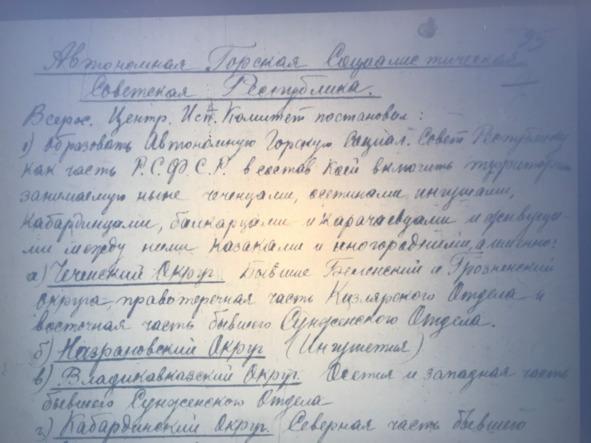 95
Автономная Горская Социалистическая
Советская Республика.
Всерос. Центр. Исп. Комитет постановил:
1) образовать Автономную Горскую Социал. Совет Республику
как часть Р.С.Ф.С.Р. в состав коей включить территорию
занимаемую ныне чеченцами, осетинами, ингушами,
кабардинцами, балкарцами и карачаевцами и живущи-
ми между ними казаками и иногородними, а именно:
а) Чеченский Округ. Бывшие Веденский и Грозненский
округа, правотеречная часть Кизлярского Отдела и
восточная часть бывшего Сунженского Отдела.
б) Назрановский Округ (Ингушетия)
в) Владикавказский Округ Осетия и западная часть
бывшего Сунженского Отдела
г) Кабардинский Округ. Северная часть бывшего